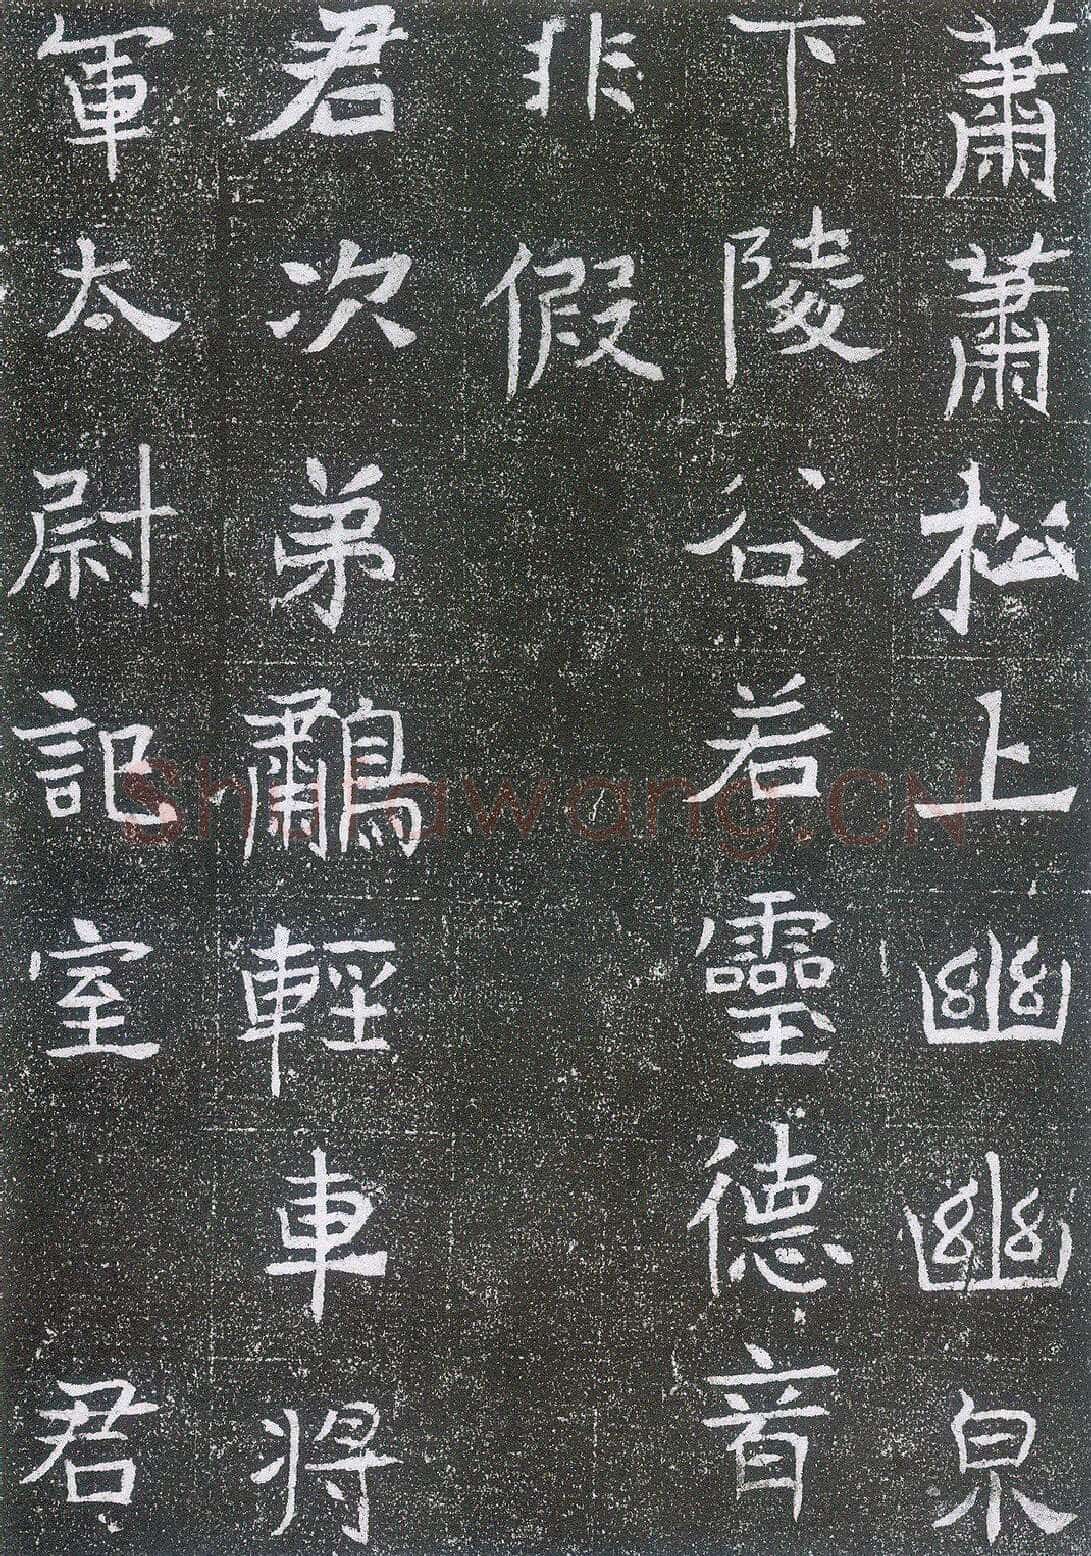 蕭蕭松上幽幽泉
下陵谷若靈德音
非假
君次弟鷫輕車將
軍太尉記室君
Shufawang.CN